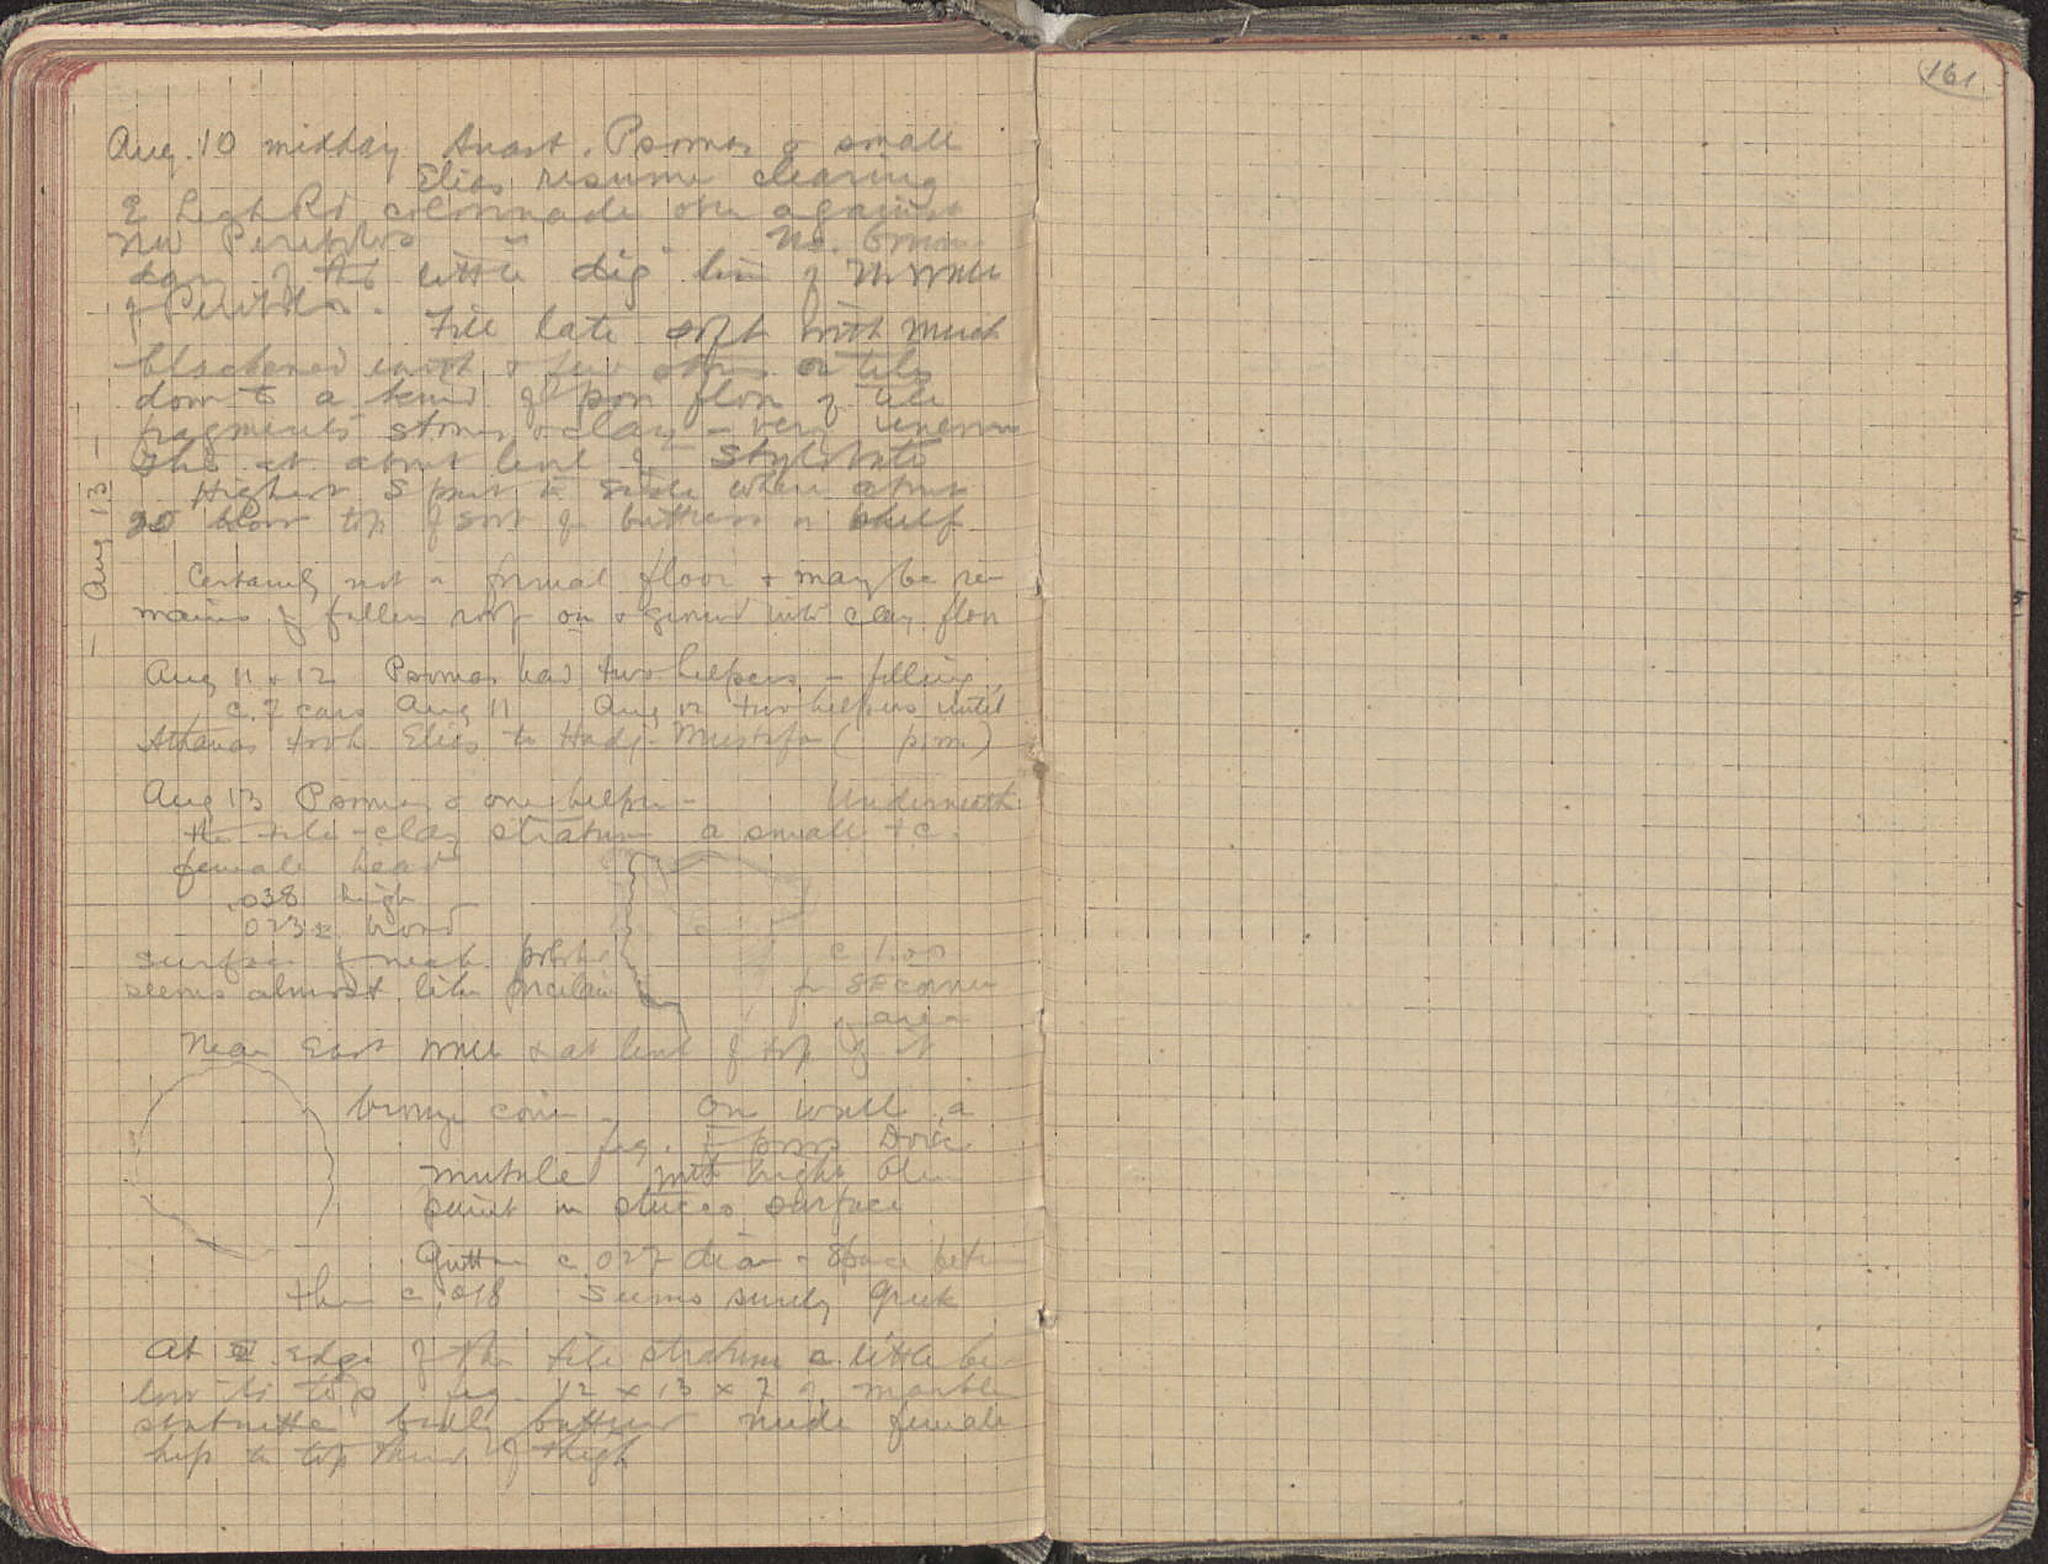 161
Aug. 10 midday Anast. Psomas & small
Elias resume clearing
E Lech Rd colonnade over against
NW Peribolos No. boun-
dary of this little dig line of N wall
of Peribolos.
Fill late soft with much
blackened earth & few stones or tiles
down to a kind of poor floor of tile
fragments stones & clay - very uneven
This at about level of stylobate
Highest S part to side where about
20 below top of sort of buttress or shelf
Certainly not a formal floor & may be re-
mains of fallen roof on & ground into clay floor
- Aug 13 -
Aug 11 & 12 Psomas had two helpers - filling
c. 7 cars Aug 11 Aug 12 two helpers until
Athanas took Elias to Hadj. Mustafa ( p.m.)
Aug 13 Psomas & one helper - Underneath
the tile-clay stratum a small t c.
female head
.038 high
.023 broad
surface of neck polished
seems almost like porcelain
c 1.00
fr SE corner
area
Near East wall & at level of top of it
bronze coin - On wall a
frg. of poros Doric
mutule with bright blue
paint on stucco surface
Guttae c .027 diam & space between
them c .018 Seems surely Greek
At edge of the tile stratum a little be-
low its top frg. 12 x 13 x 7 of marble
statuette badly battered nude female
hip to top third of thigh